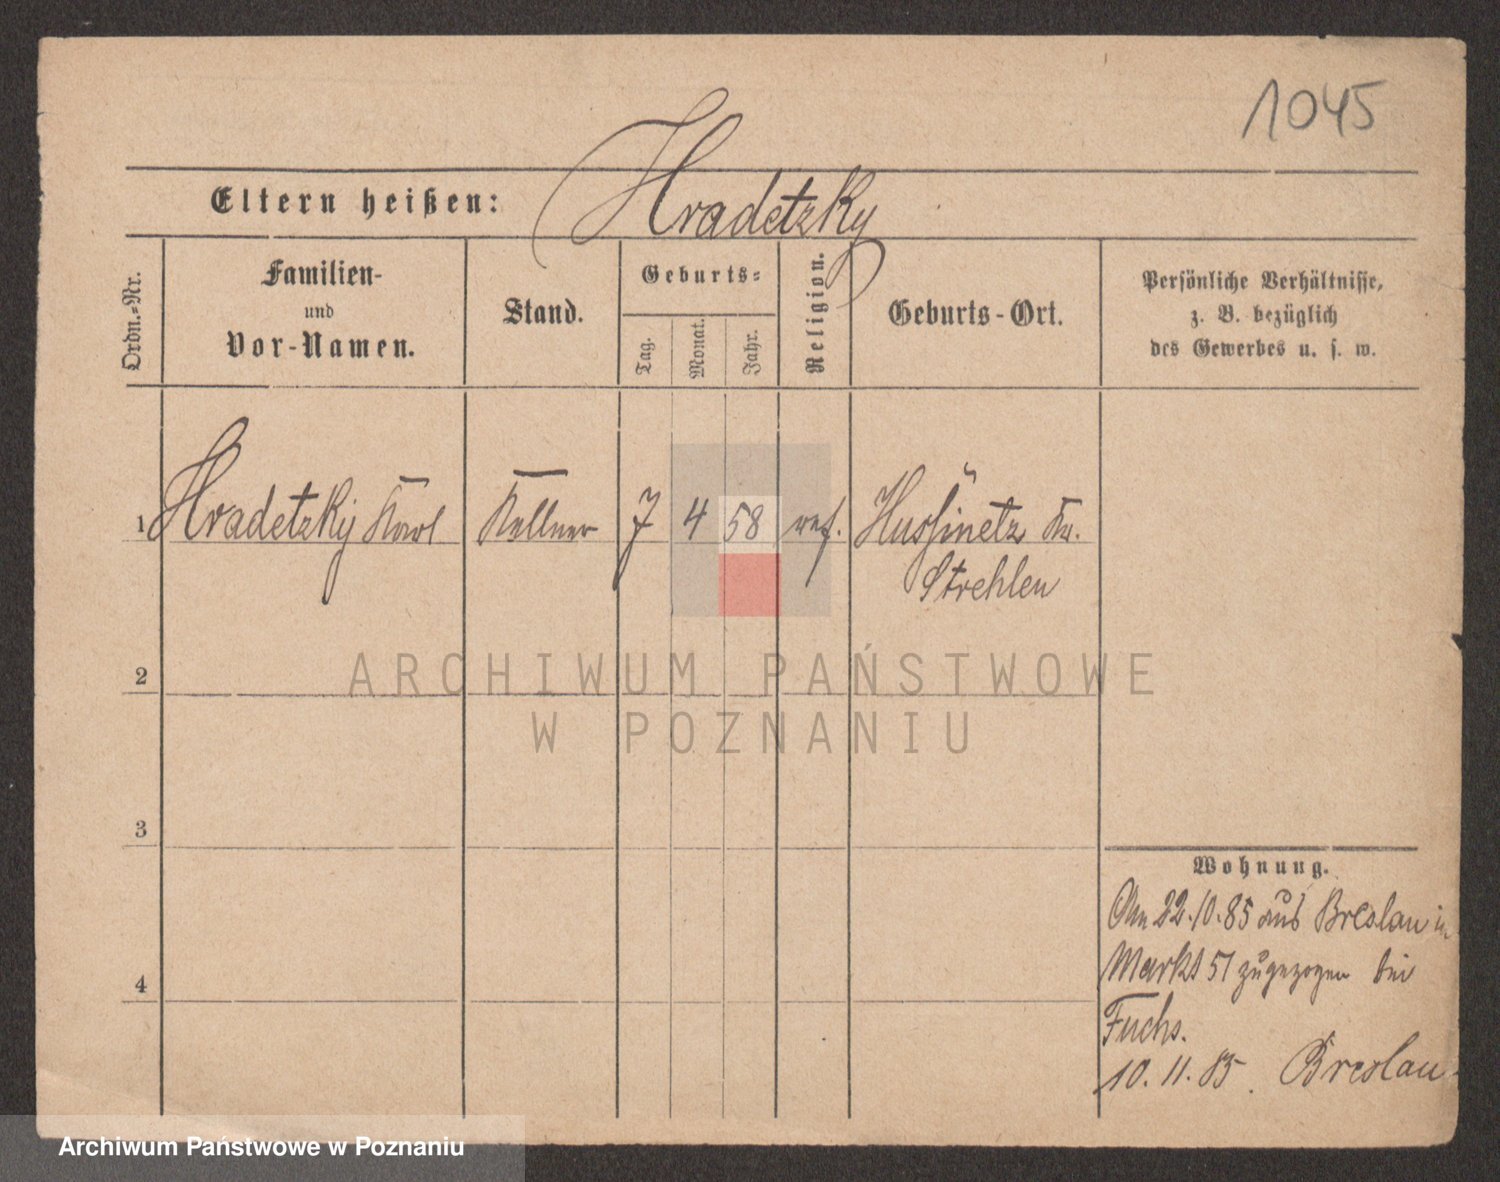 1045
Eltern heißen: Hradetzky
Ordn.-Nr.
Familien-
und
Vor-Namen.
Stand.
Geburts-
Tag.
Monat.
Jahr.
Religion.
Geburts-Ort.
Persönliche Verhältnisse,
z. B. bezüglich
des Gewerbes u. s. w.
1 Hradetzky Karl Kellner 7 4 58 ref. Hussinetz Kr.
Strehlen
ARCHIWUM PAŃSTWOWE
W POZNANIU
2
3
4
Wohnung.
Am 22.10.85 aus Breslau in
Markt 51 zugezogen bei
Fuchs.
10.11.85 Breslau.
Archiwum Państwowe w Poznaniu